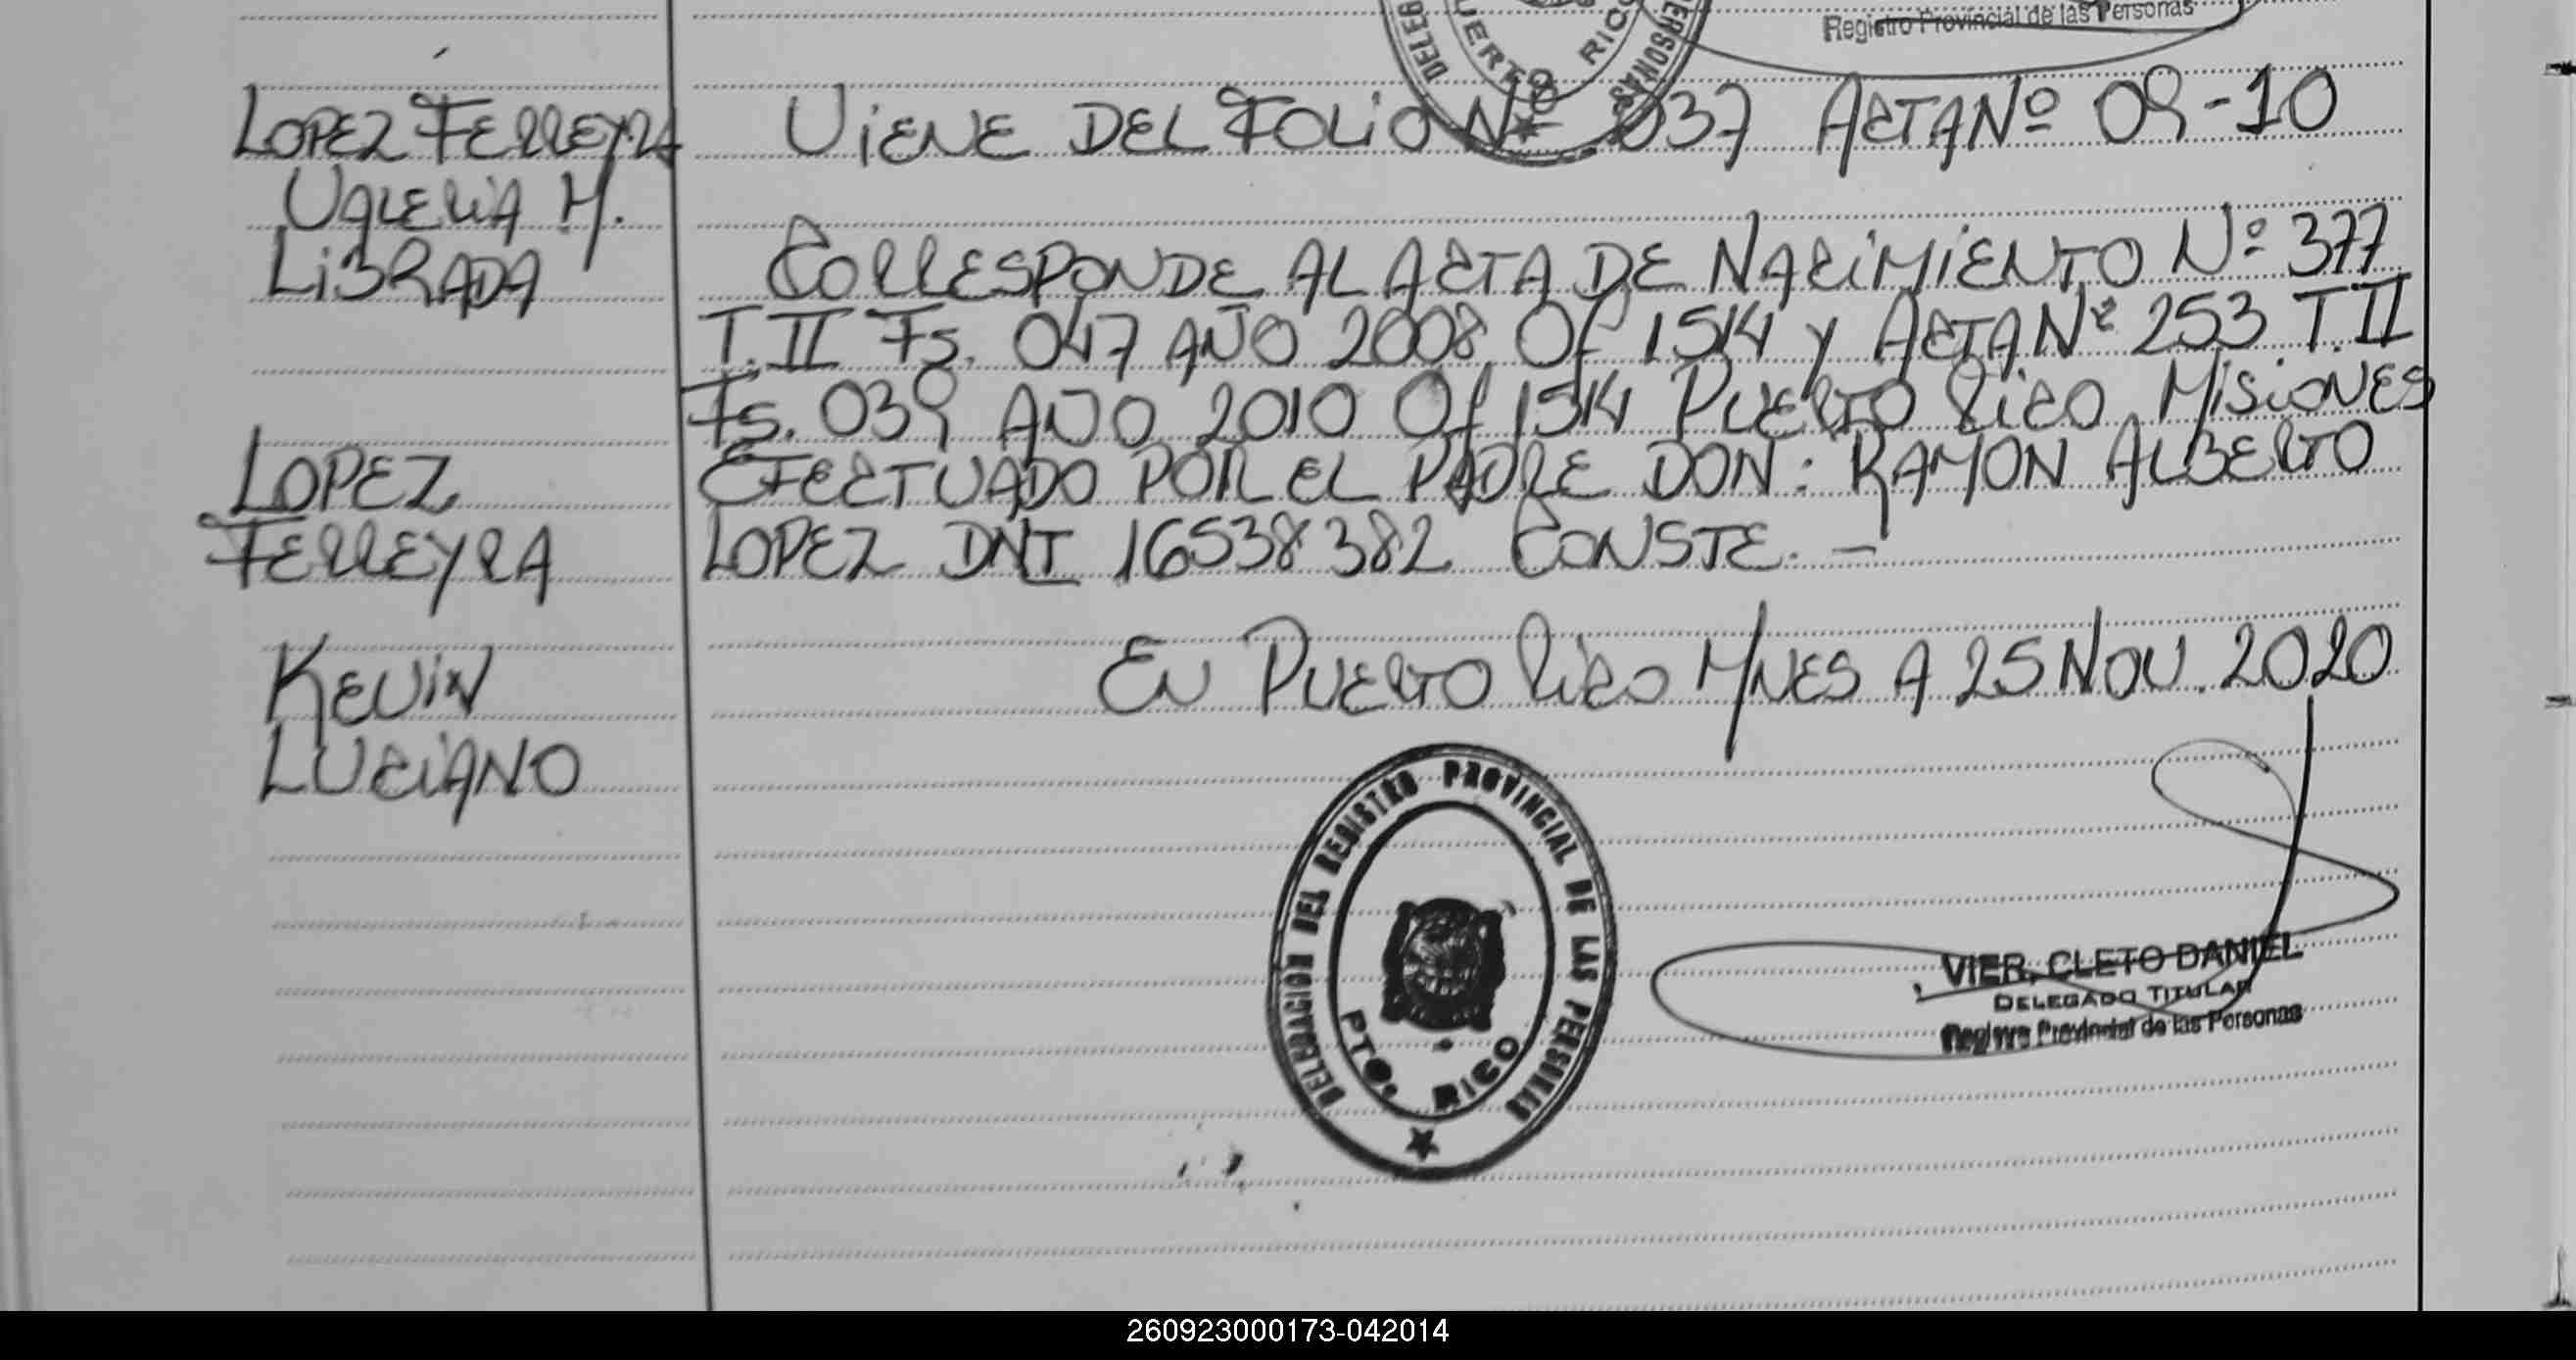 Registro Provincial de las Personas
DELEG
PERSONAS
PUERTO RICO
LOPEZ FERREYRA
VALERIA M.
LIBRADA
VIENE DEL FOLIO Nº 037 ACTA Nº 09-10
CORRESPONDE AL ACTA DE NACIMIENTO Nº 377
T.II Fs. 047 AÑO 2008 Of 1514 Y ACTA Nº 253 T.II
Fs. 039 AÑO 2010 Of 1514 PUERTO RICO MISIONES
EFECTUADO POR EL PADRE DON: RAMON ALBERTO
LOPEZ DNI 16538382 CONSTE. –
LOPEZ
FERREYRA
KEVIN
LUCIANO
EN PUERTO RICO M/NES A 25 NOV. 2020
DELEGACION DEL REGISTRO PROVINCIAL DE LAS PERSONAS
PTO. RICO
VIER, CLETO DANIEL
DELEGADO TITULAR
Registro Provincial de las Personas
260923000173-042014